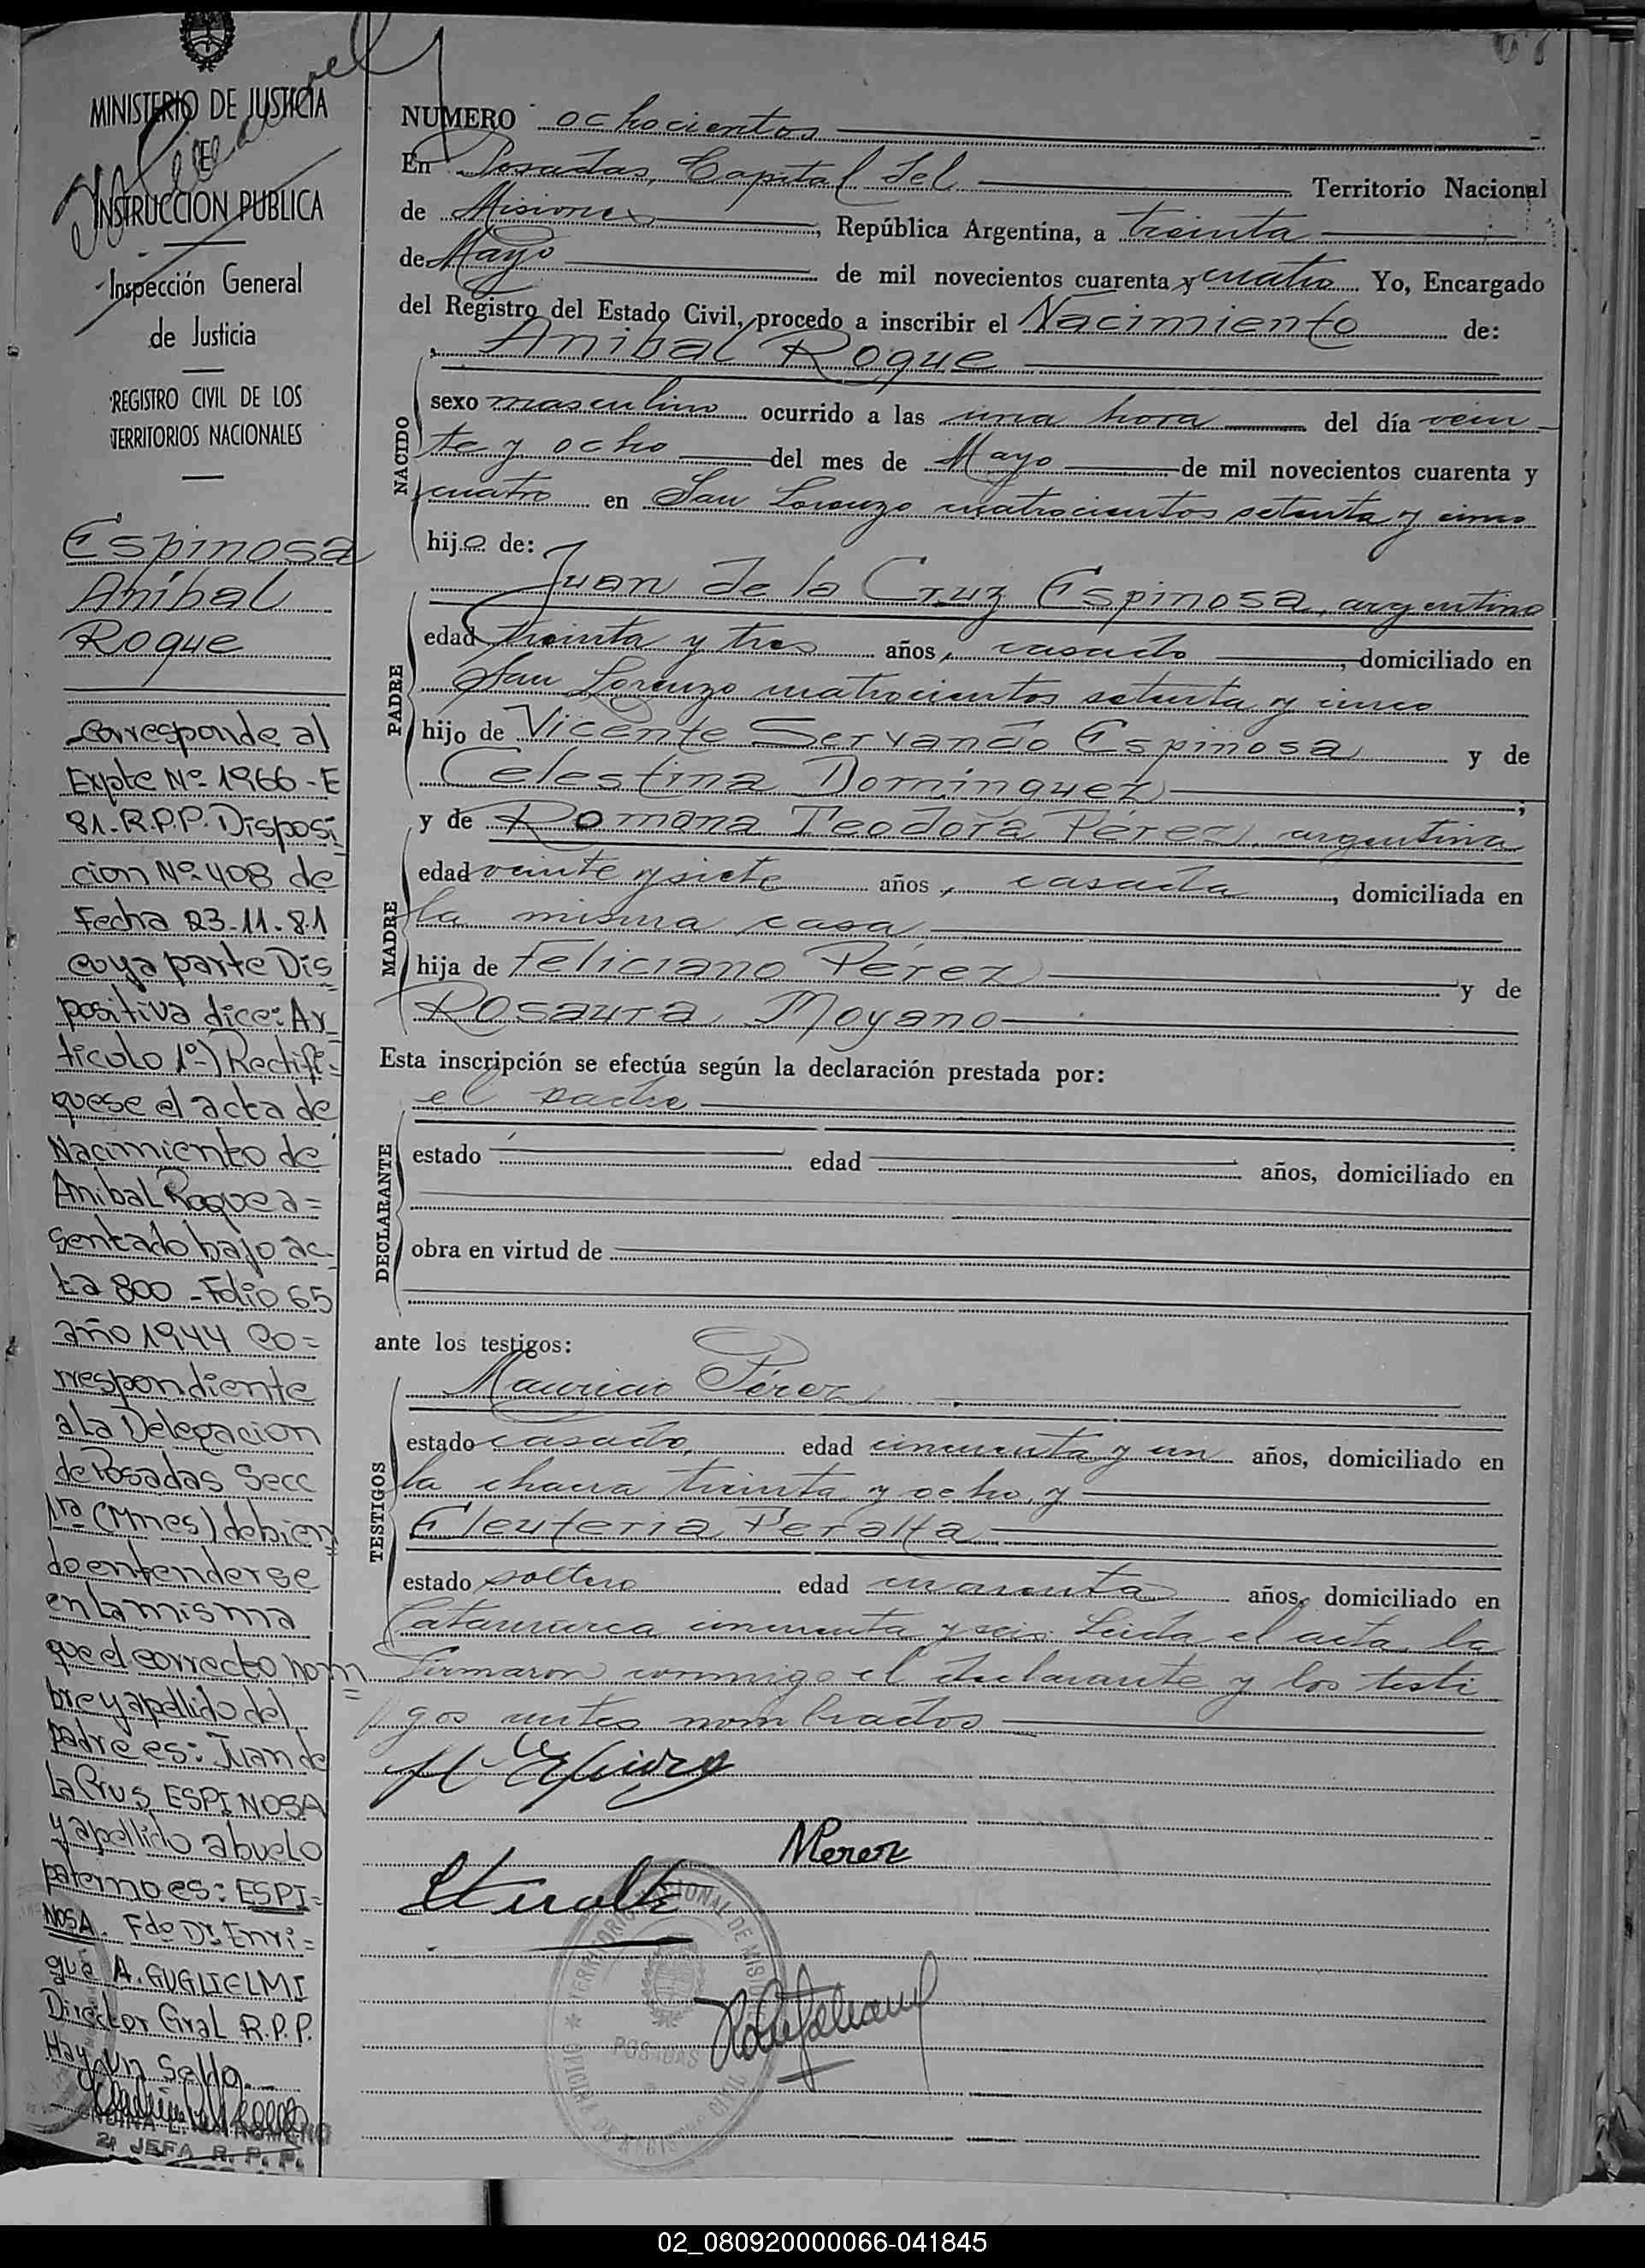 MINISTERIO DE JUSTICIA
E
INSTRUCCION PUBLICA
Inspección General
de Justicia
REGISTRO CIVIL DE LOS
TERRITORIOS NACIONALES
Espinosa
Aníbal
Roque
corresponde al
Expte Nº 1966-E
81-R.P.P. Disposi
cion Nº 408 de
Fecha 23-11-81
cuya parte Dis
positiva dice: Ar
ticulo 1º-) Rectifi=
quese el acta de
Nacimiento de
Anibal Roque a=
sentado bajo ac-
ta 800 - Folio 65
año 1944 co=
rrespondiente
a la Delegacion
de Posadas Secc
1ra (Mnes) debien
do entenderse
en la misma
que el correcto nom
bre y apellido del
padre es: Juan de
La Crus ESPINOSA
y apellido abuelo
paterno es: ESPI=
NOSA. Fdo Dr Enri=
que A. GUGLIELMI
Director Gral R.P.P.
Hay un Sello.-
2ª JEFA R. P. P.
NUMERO ochocientos
En Posadas, Capital del Territorio Nacional
de Misiones, República Argentina, a treinta
de Mayo de mil novecientos cuarenta y cuatro Yo, Encargado
del Registro del Estado Civil, procedo a inscribir el Nacimiento de:
Aníbal Roque
NACIDO
sexo masculino ocurrido a las una hora del día vein-
te y ocho del mes de Mayo de mil novecientos cuarenta y
cuatro en San Lorenzo cuatrocientos setenta y cinco
hijo de:
PADRE
Juan de la Cruz Espinosa, argentino
edad treinta y tres años, casado, domiciliado en
San Lorenzo cuatrocientos setenta y cinco
hijo de Vicente Servando Espinosa y de
Celestina Domínguez;
y de Romana Teodora Pérez, argentina
MADRE
edad veinte y siete años, casada, domiciliada en
la misma casa,
hija de Feliciano Pérez y de
Rosaura Moyano
Esta inscripción se efectúa según la declaración prestada por:
el padre
DECLARANTE
estado edad años, domiciliado en
obra en virtud de
ante los testigos:
TESTIGOS
Mauricio Pérez,
estado casado, edad cincuenta y un años, domiciliado en
la chacra treinta y ocho, y
Eleuteria Peralta,
estado soltero edad cuarenta años, domiciliado en
Catamarca cincuenta y seis. Leída el acta, la
firmaron conmigo el declarante y los testi
gos antes nombrados
MPerez
TERRITORIO NACIONAL DE MISIONES
POSADAS
OFICINA DE REGISTRO CIVIL
02_080920000066-041845